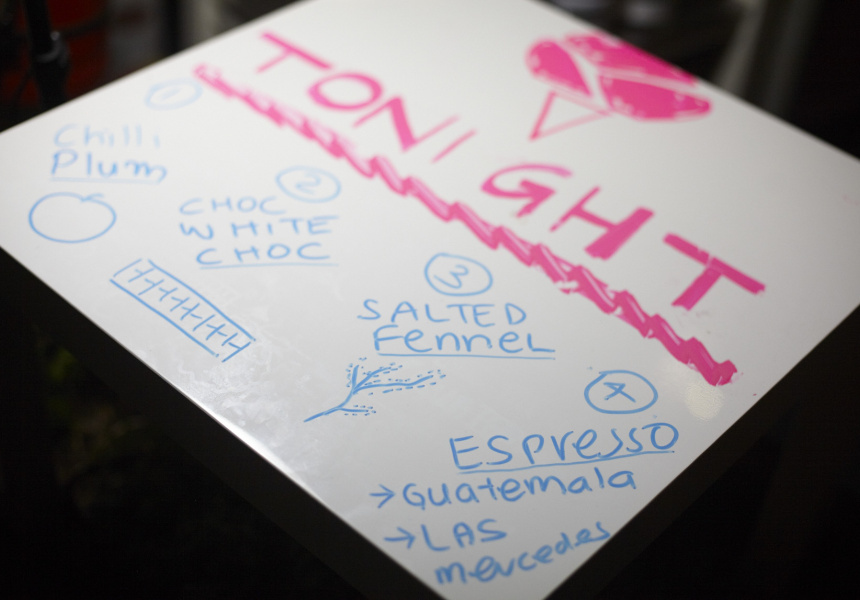 TONIGHT
1
Chilli
Plum
2
CHOC
WHITE
CHOC
3
SALTED
Fennel
4
ESPresso
→Guatemala
→LAS
mercedes